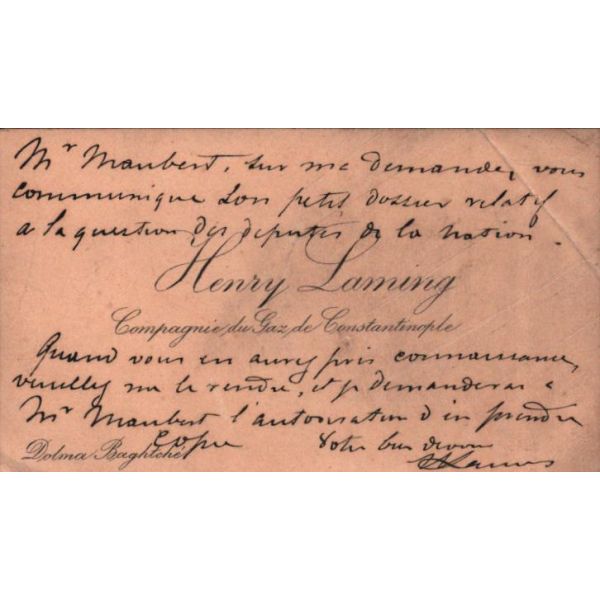 Mr Maubert, sur ma demande, vous
communique son petit dossier relatif
a la question des deputés de la nation.
Henry Laming
Compagnie du Gaz de Constantinople
Quand vous en aurez pris connaissance,
veuillez me le rendre, et je demanderai a
Mr Maubert l'autorisation d'en prendre
copie Votre bien devoué
Dolma Baghtché